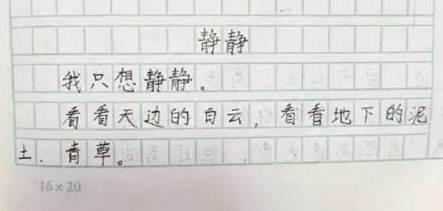 静静
我只想静静。
看看天边的白云，看看地下的泥
土．青草。
16×20